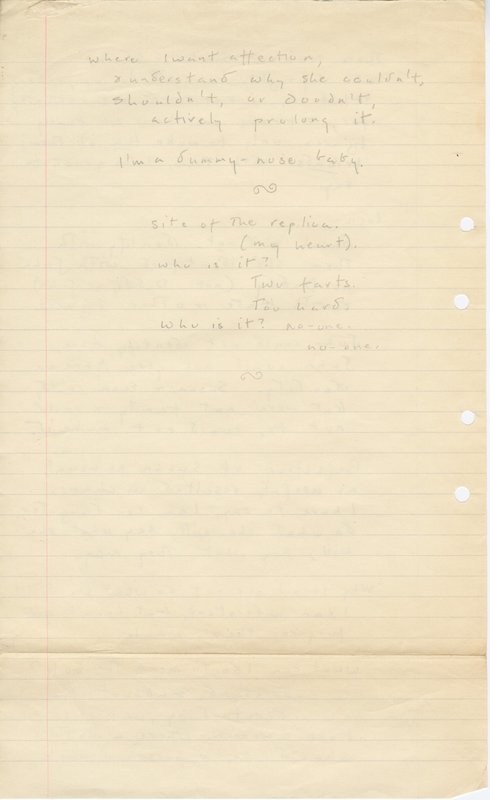 where I want affection,
& understand why she couldn't,
shouldn't, or doodn't,
actively prolong it.
I'm a dummy-nose baby.
site of the replica.
(my heart).
who is it?
Two farts.
Too hard.
Who is it? no-one.
no-one.